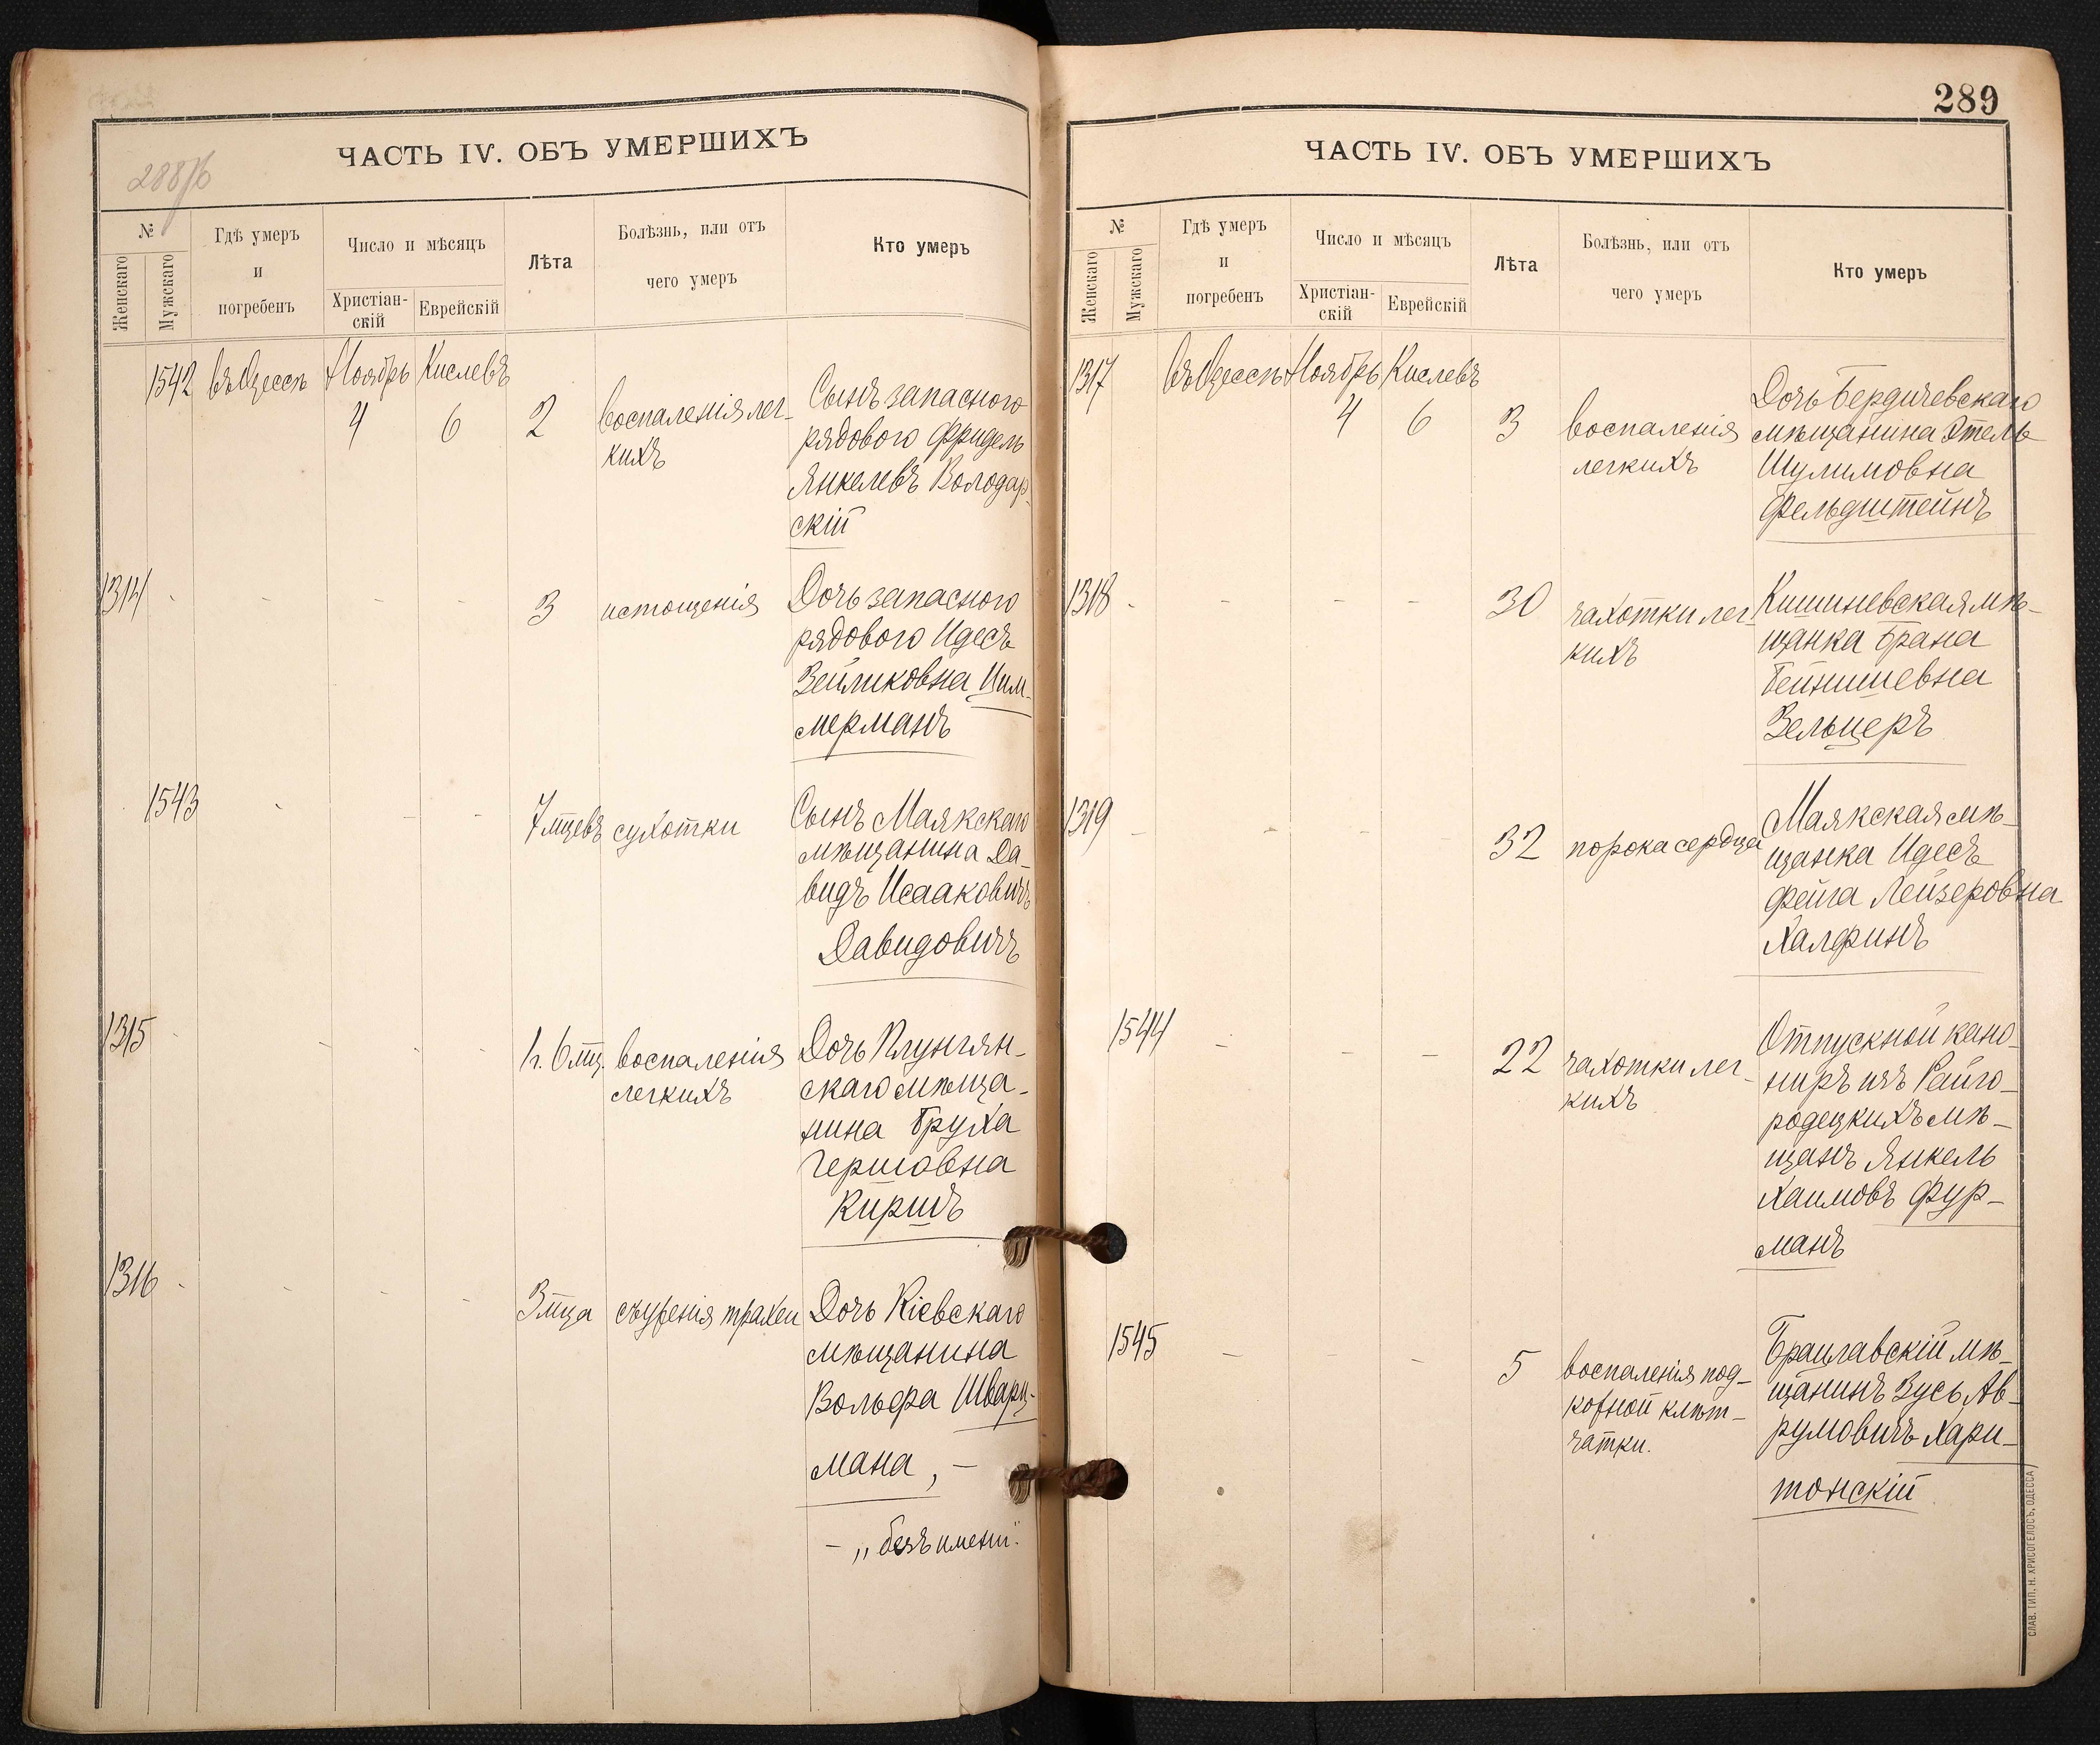 ЧАСТЬ IV. ОБЪ УМЕРШИХЪ
288/б
№
Женскаго
Мужскаго
Гдѣ умеръ
и
погребенъ
Число и мѣсяцъ
Христіан-
скій
Еврейскій
Лѣта
Болѣзнь, или отъ
чего умеръ
Кто умеръ
1542 въ Одессѣ Ноябрь Кислевъ
4 6 2
воспаленія лег-
кихъ
Сынъ запасного
рядового Фридель
Янкелевъ Володар-
скій
1314 - - - - 3 истощенія
Дочь запасного
рядового Идесъ
Зейликовна Цим-
мерманъ
1543 - - - 7 мцевъ сухотки
Сынъ Маякскаго
мѣщанина Да-
видъ Исааковичъ
Давидовичъ
1315 - - - - 1 г. 6 мц. воспаленія
легкихъ
Дочь Плунгян-
скаго мѣща-
нина Бруха
Гершовна
Киршъ
1316 - - - - 3 мца съуженія трахеи
Дочь Кіевскаго
мѣщанина
Вольфа Шварц-
мана, -
- „безъ имени".
289
ЧАСТЬ IV. ОБЪ УМЕРШИХЪ
№
Женскаго
Мужскаго
Гдѣ умеръ
и
погребенъ
Число и мѣсяцъ
Христіан-
скій
Еврейскій
Лѣта
Болѣзнь, или отъ
чего умеръ
Кто умеръ
1317 въ Одессѣ Ноябрь Кислевъ
4 6 3
воспаленія
легкихъ
Дочь Бердичевскаго
мѣщанина Этель
Шулимовна
Фельдштейнъ
1318 - - - - 30
чахотки лег-
кихъ
Кишиневская мѣ-
щанка Брана
Бейнишевна
Зельцеръ
1319 - - - - 32 порока сердца
Маякская мѣ-
щанка Идесъ
Фейга Лейзеровна
Халфинъ
1544 - - - 22
чахотки лег-
кихъ
Отпускной кано-
ниръ изъ Райго-
родецкихъ мѣ-
щанъ Янкель
Хаимовъ Фур-
манъ
1545 - - - 5
воспаленія под-
кожной клѣт-
чатки.
Брацлавскій мѣ-
щанинъ Зусь Ав-
румовичъ Хари-
тонскій
СЛАВ. ТИП. Н. ХРИСОГЕЛОСЪ, ОДЕССА